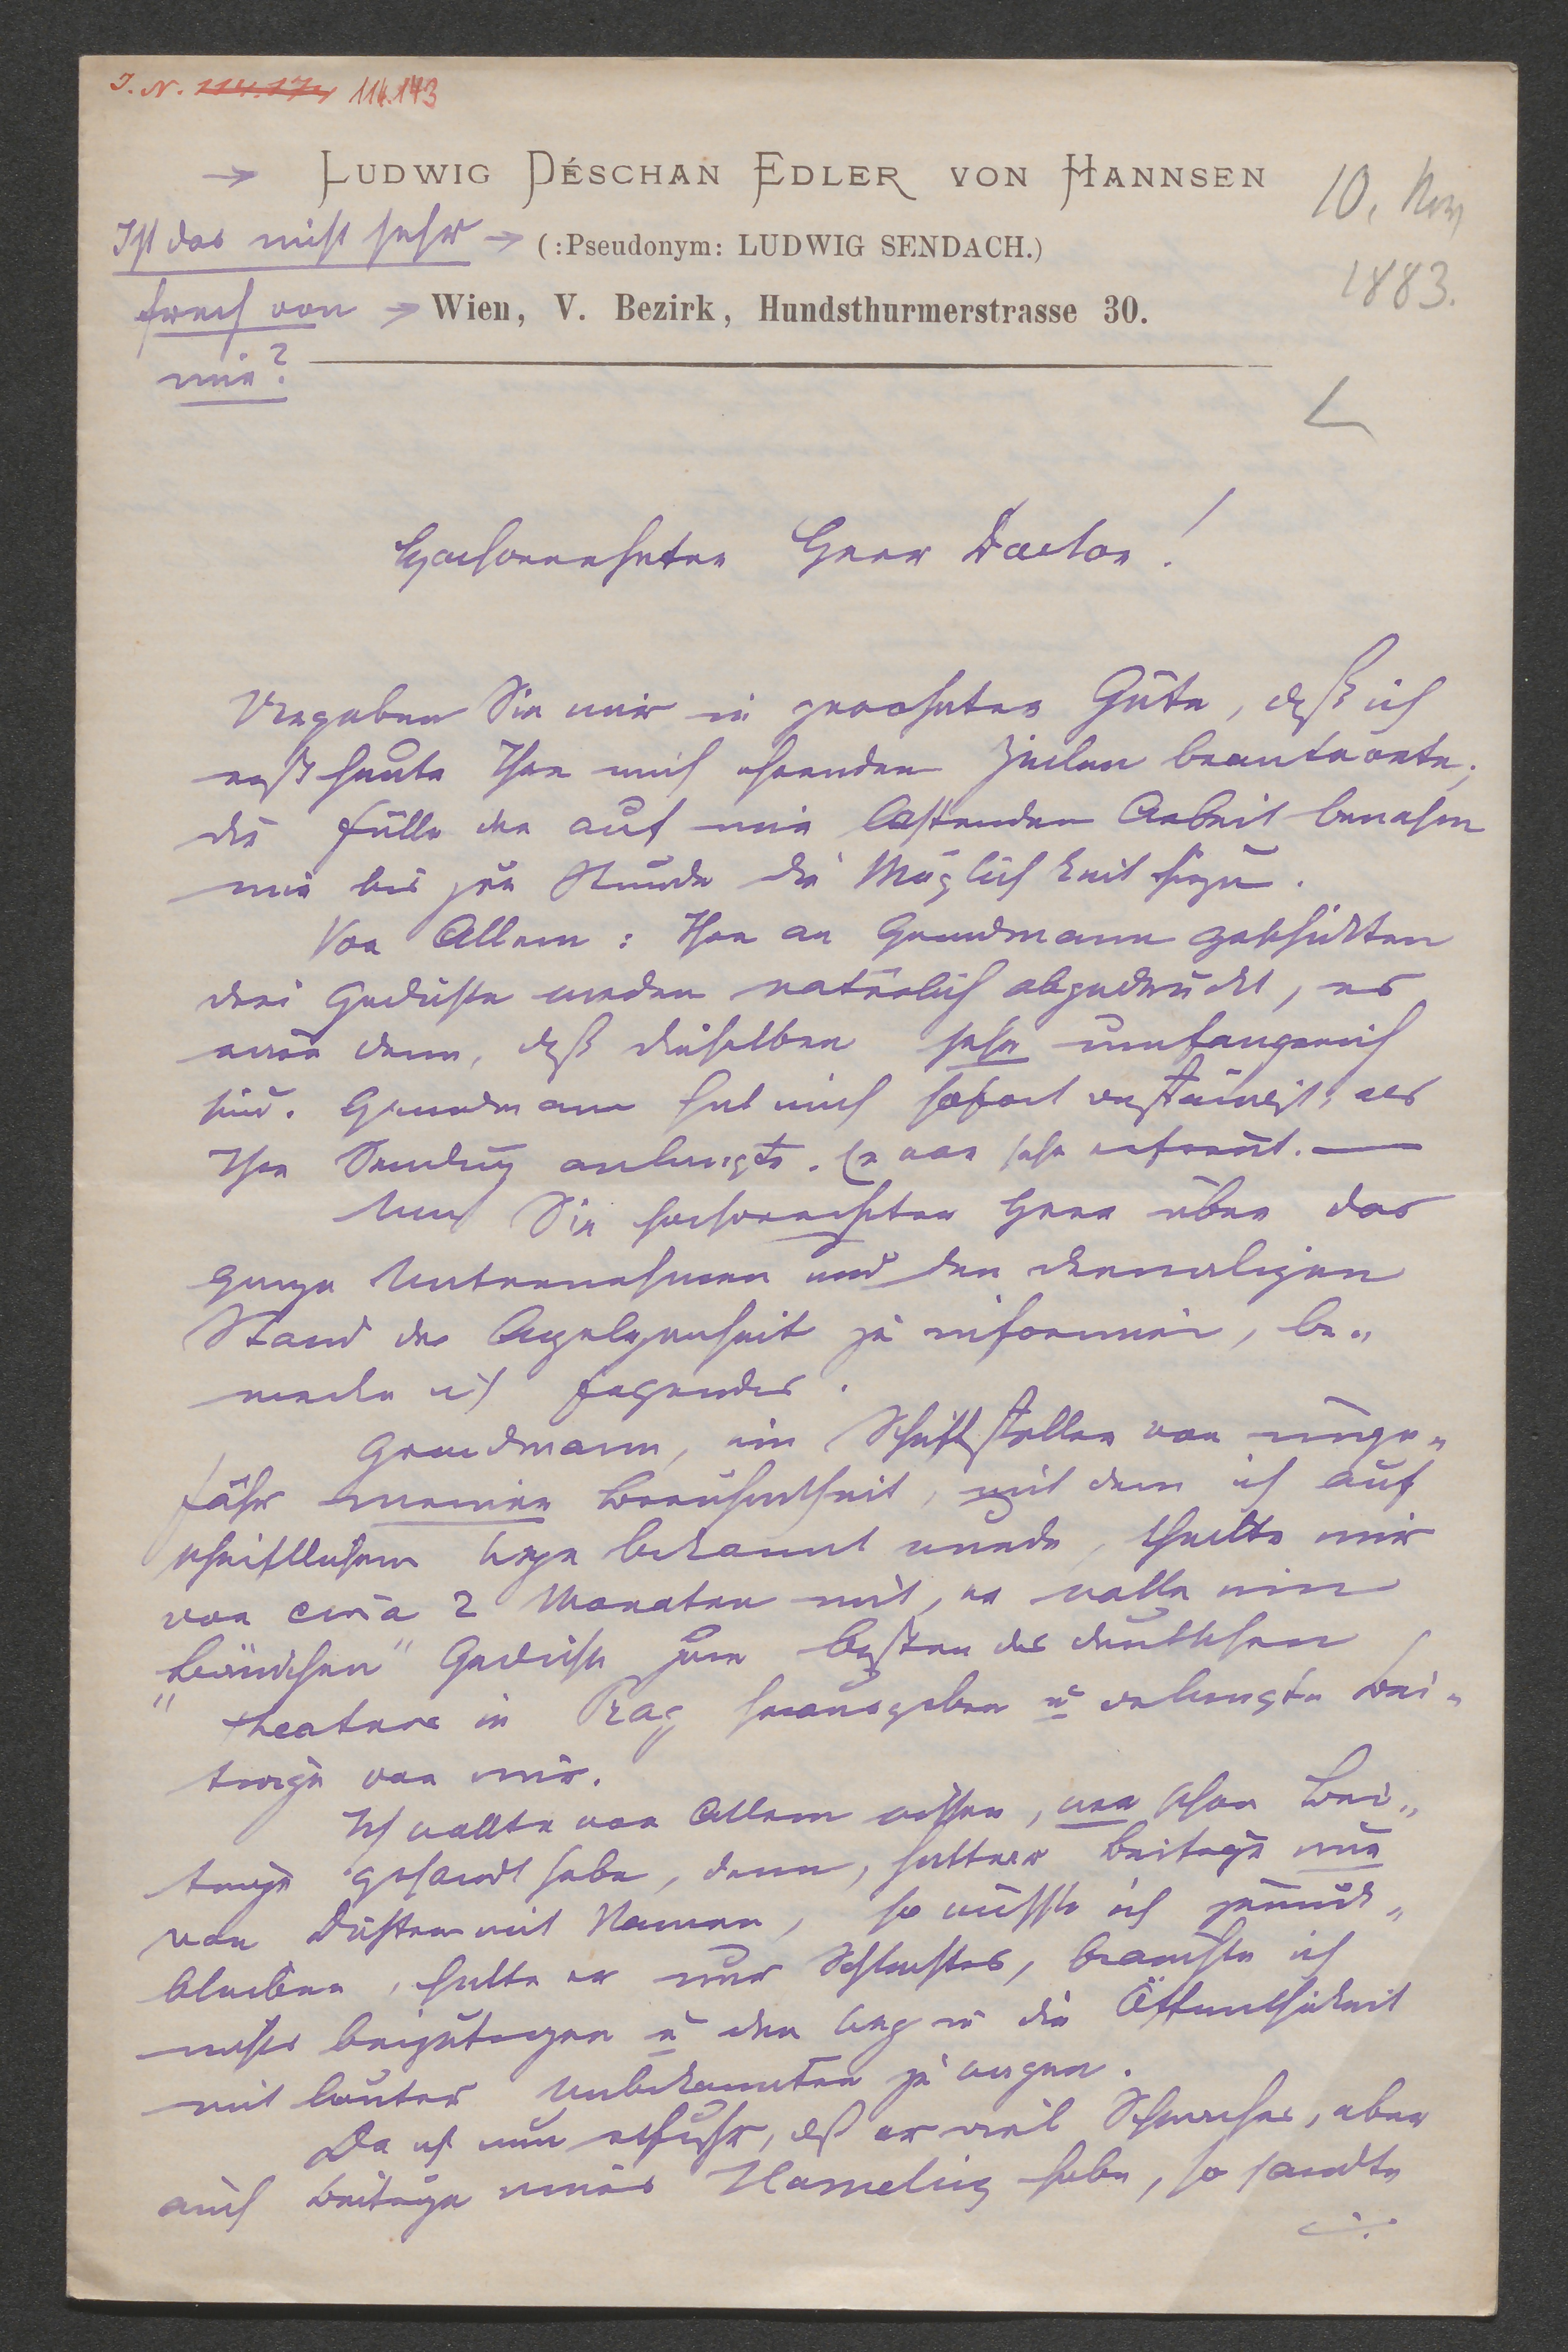 I. N. 114.174 114.173
→ LUDWIG DÉSCHAN EDLER VON HANNSEN
10. Nov.
1883.
Ist das nicht sehr → (:Pseudonym: LUDWIG SENDACH.)
frech von → Wien, V. Bezirk, Hundsthurmerstrasse 30.
mir?
Hochverehrter Herr Doctor!
Vergeben Sie mir in gewohnter Güte, daß ich
erst heute Ihre mich ehrenden Zeilen beantworte;
die Fülle der auf mir lastenden Arbeit benahm
mir bis zur Stunde die Möglichkeit hiezu.
Vor Allem: Ihre an Grundmann geschickten
drei Gedichte werden natürlich abgedruckt, es
wäre denn, daß dieselben sehr umfangreich
sind. Grundmann hat mich sofort verständigt, als
Ihre Sendung anlangte. Er war sehr erfreut. —
Um Sie hochverehrter Herr über das
ganze Unternehmen und den dermaligen
Stand der Angelegenheit zu informiren, be-
merke ich folgendes.
Grundmann, ein Schriftsteller von unge-
fähr meiner Berühmtheit, mit dem ich auf
schriftlichem Wege bekannt wurde, theilte mir
vor circa 2 Monaten mit, er wolle ein
"Bändchen" Gedichte zum Besten des deutschen
Theaters in Prag herausgeben u verlangte Bei-
träge von mir.
Ich wollte vor Allem wissen, wer schon Bei-
träge gesandt habe, denn, hatte er Beiträge nur
von Dichtern mit Namen, so müßte ich zurück-
bleiben, hatte er nur Schlechtes, brauchte ich
nichts beizutragen u den Weg in die Öffentlichkeit
mit lauter Unbekannten zu wagen.
Da ich nun erfuhr, daß er viel Schwaches, aber
auch Beiträge eines Hamerling habe, so sandte
./.